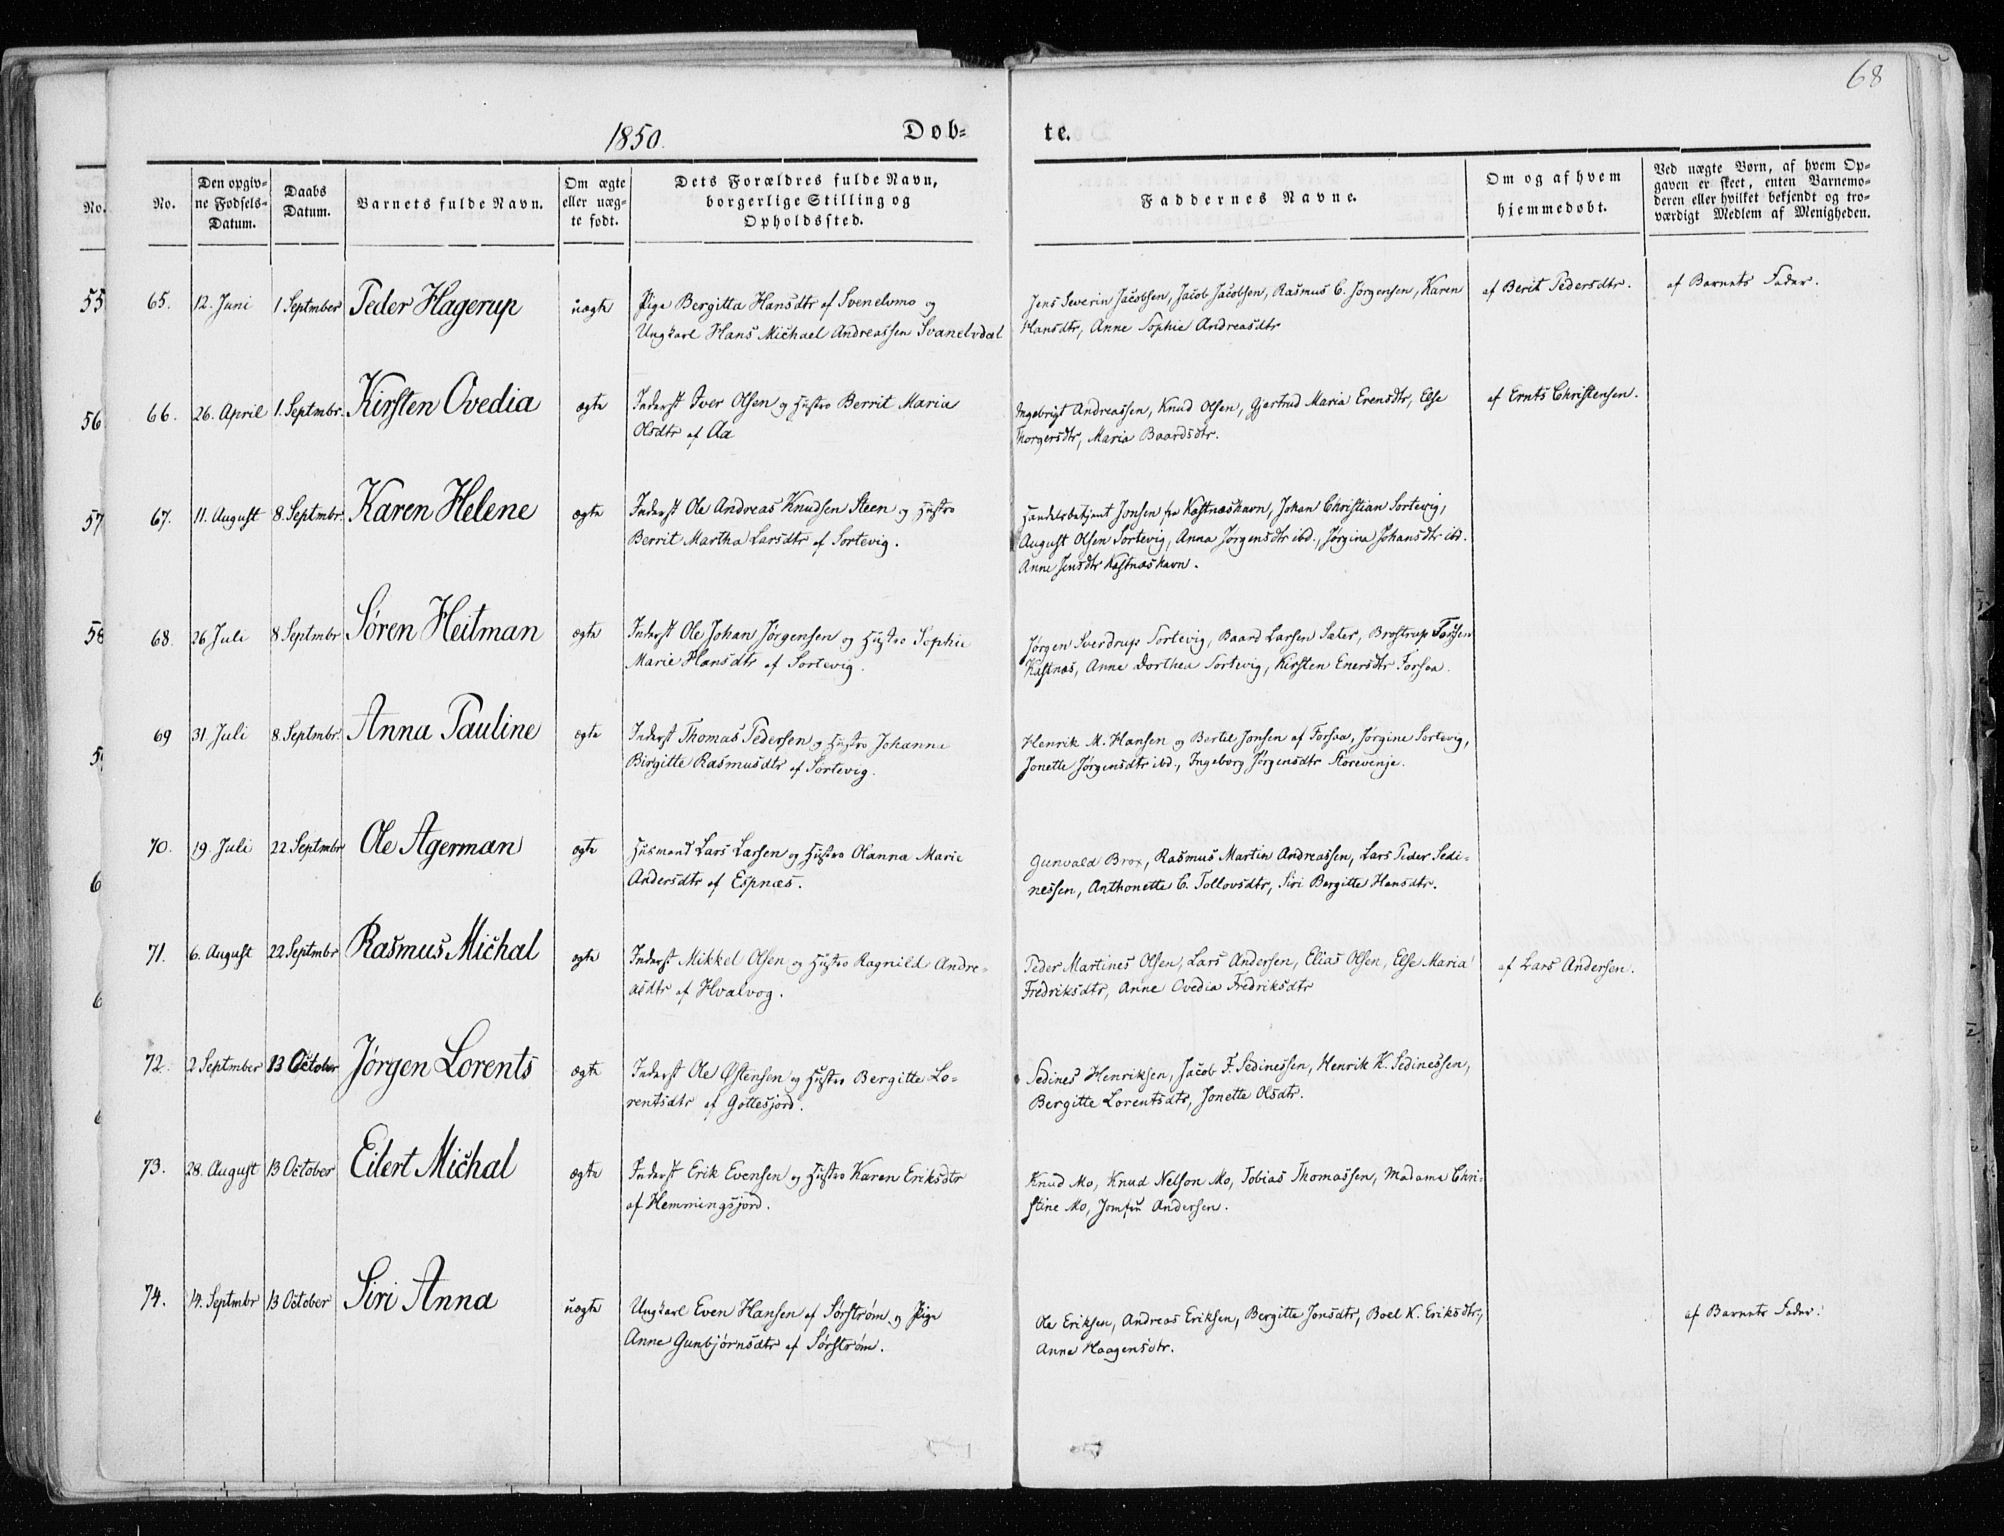 68
1850. Døb- te.
No.
No.
Den opgiv-
ne Fødsels-
Datum.
Daabs
Datum.
Barnets fulde Navn.
Om ægte
eller uæg-
te født.
Dets Forældres fulde Navn,
borgerlige Stilling og
Opholdssted.
Faddernes Navne.
Om og af hvem
hjemmedøbt.
Ved uægte Børn, af hvem Op-
gaven er skeet, enten Barnemo-
deren eller hvilket bekjendt og tro-
værdigt Medlem af Menigheden.
55
65. 12. Juni 1 Septmber Peder Hagerup uægte
Pige Bergitta Hansdtr af Svenelvmo og
Ungkarl Hans Michael Andreassen Svanelvdal
Jens Severin Jacobsen, Jacob Jacobsen, Rasmus C. Jørgensen, Karen
Hansdtr, Anne Sophie Andreasdtr
af Berit Pedersdtr.
af Barnets Fader.
56
66. 26. April 1. Septmbr. Kirsten Ovedia ægte
Inderst Iver Olsen og Hustro Berrit Maria
Olsdtr af Aa
Ingebrigt Andreassen, Knud Olsen, Gjertrud Maria Erensdtr, Else
Thorgersdtr, Maria Baardsdtr.
af Ernts Christensen.
57
67. 11. August 8. Septmbr. Karen Helene ægte
Inderst Ole Andreas Knudsen Steen og Hustro
Berrit Martha Larsdtr af Sortevig.
Handelsbetjent Jonsen fra Kastnæshavn, Johan Christian Sortevig,
August Olsen Sortevig, Anna Jørgensdtr ibd., Jørgina Johansdtr ibd.
Anne Jensdtr Kastnæshavn.
58
68. 26 Juli 8 Septmbr Søren Heitman ægte
Inderst Ole Johan Jørgensen og Hustro Sophie
Marie Hansdtr af Sortevig.
Jørgen Sverdrup Sortevig, Baard Larsen Sæter, Brostrup
Kastnæs, Anne Dorthea Sortevig, Kirsten Enersdtr Forsaa.
69 31. Juli 8. Septmbr. Anna Pauline ægte
Inderst Thomas Pedersen og Hustro Johanna
Birgitte Rasmusdtr af Sortevig.
Henrik M. Hansen og Bertel Jonsen af Forsaa, Jørgine Sortevig,
Jonette Jørgensdtr ibd., Ingeborg Jørgensdtr Storevenje.
5
70. 19. Juli 22 Septmbr Ole Agerman ægte
Husmand Lars Larsen og Hustro Olanna Marie
Andersdtr af Espnæs.
Gunvald Brox, Rasmus Martin Andreassen, Lars Peder Sedi-
nessen, Anthonette C. Tollovsdtr, Siri Bergitte Hansdtr.
6
71. 6. August 22 Septmbr Rasmus Michal ægte
Inderst Mikkel Olsen og Hustro Ragnild Andre-
asdtr af Hvalvog.
Peder Martines Olsen, Lars Andersen, Elias Olsen, Else Maria
Fredriksdtr, Anne Ovedia Fredriksdtr
af Lars Andersen.
6
72. 2 Septmber 13 October Jørgen Lorents ægte
Inderst Ole Østensen og Hustro Bergitte Lo-
rentsdtr af Gottesjord.
Sedines Henriksen, Jacob F. Sedinessen, Henrik K. Sedinessen,
Bergitte Lorentsdtr, Jonette Olsdtr.
73. 28. August 13 October Eilert Michal ægte
Inderst Erik Evensen og Hustro Karen Eriksdtr
af Hemmingsjord.
Knud Mo, Knud Nelson Mo, Tobias Thomassen, Madame Chri-
stine Mo, Jomfru Andersen.
74. 14. Septmbr 13 October Siri Anna uægte
Ungkarl Even Hansen af Sørstrøm og Pige
Anne Gunbjørnsdtr af Sørstrøm.
Ole Eriksen, Andreas Eriksen, Bergitte Jonsdtr, Boel K. Eriksdtr,
Anne Haagensdtr.
af Barnets Fader.